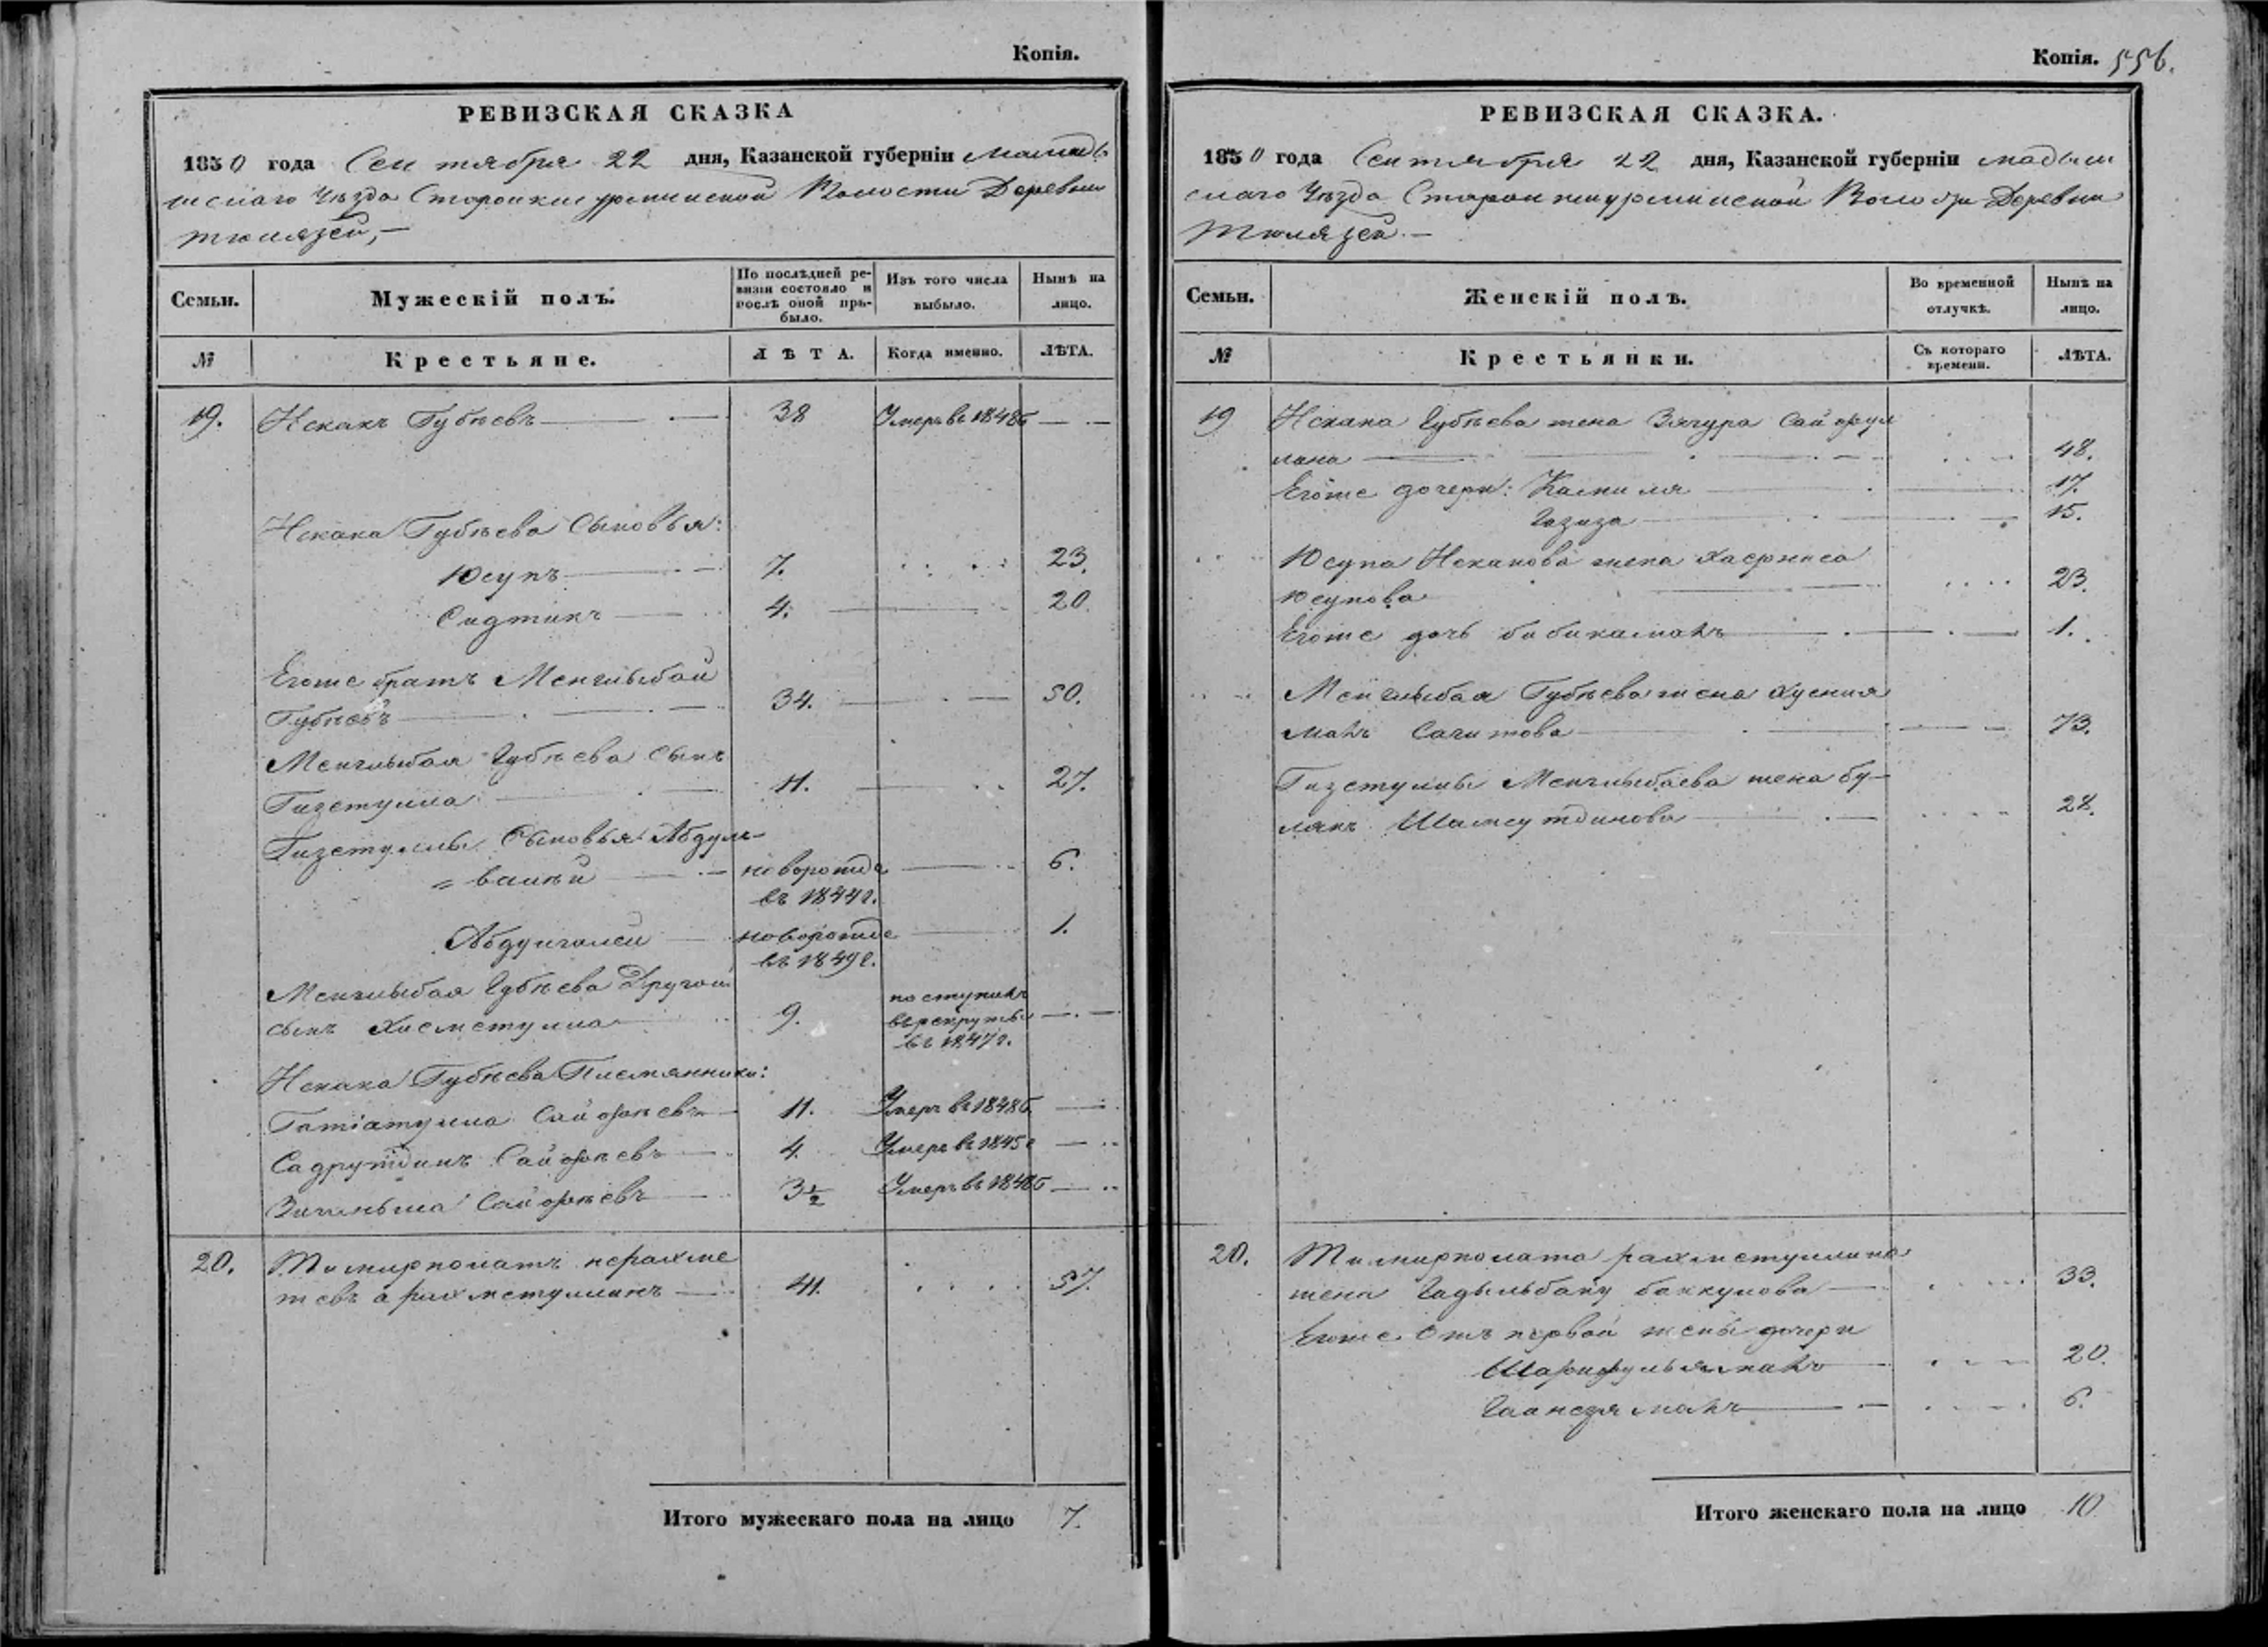 Копія.
РЕВИЗСКАЯ СКАЗКА
1850 года Сентября 22 дня, Казанской губерніи Мамады
шскаго Уѣзда Волости Деревни
Тюлязей,—
Семьи. Мужескій полъ. По послѣдней ревизіи состояло и послѣ оной прибыло. Изъ того числа выбыло. Нынѣ на лицо.
№ Крестьяне. ЛѢТА. Когда именно. ЛѢТА.
19. Искакъ Губѣевъ 38 Умеръ въ 1848г
Искака Губѣева Сыновья:
Юсупъ 7. 23.
Сидтикъ 4. 20.
Егоже братъ Менглыбай
Губѣевъ 34. 50.
Менглыбая Губѣева сынъ
Гизетулла 11. 27.
Гизетуллы Сыновья: Абдул=
=валѣй новорожде 6.
въ 1844г.
новорожде 1.
въ 1849г.
Менглыбая Губѣева Другой поступилъ
сынъ Хисметулла 9. въ рекруты
въ 1847г.
Искака Губѣева Племянники:
Гатіатулла Сайфѣевъ 11. Умеръ въ 1848г
Садрутдинъ Сайфѣевъ 4. Умеръ въ 1845г
Сайфѣевъ 3½ Умеръ въ 1848г
20. Тимирполатъ нерахме
тевъ а рахметуллинъ 41. 57.
Итого мужескаго пола на лицо 7.
Копія. 556.
РЕВИЗСКАЯ СКАЗКА.
1850 года Сентября 22 дня, Казанской губерніи Мадыш
скаго Уѣзда Волости Деревни
Тюлязей.—
Семьи. Женскій полъ. Во временной отлучкѣ. Нынѣ на лицо.
№ Крестьянки. Съ котораго времени. ЛѢТА.
19 Искака Губѣева жена Сайфул
лина 48.
Егоже дочери: Камиля 17.
Газиза 15.
Юсупа Искакова жена
Юсупова 23.
Егоже дочь бибикамалъ 1.
Менглыбая Губѣева жена Хусния
малъ Сагитова 73.
Гизетуллы Менглыбаева жена бу=
лякъ Шамсутдинова 28.
20. Тимирполата рахметуллина
жена Гадыльбану баккулова 33.
Егоже Отъ первой жены дочери
Шарифульямалъ 20.
6.
Итого женскаго пола на лицо 10